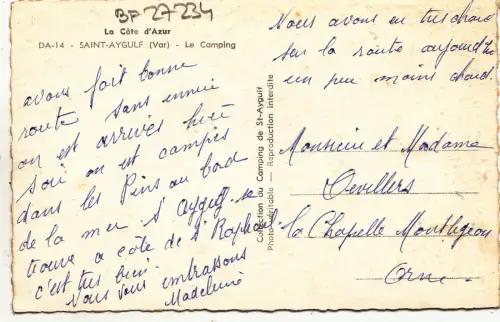 BF 27234
La Côte d'Azur
DA-14 - SAINT-AYGULF (Var) - Le Camping
avons fait bonne
route sans ennui
on est arrivés hier
soir on est campés
dans les Pins au bord
de la mer. St Aygulf se
trouve a côte de St Raphael.
c'est très bien.
Nous vous embrassons
Madeleine
Collection du Camping de St-Aygulf
Photo véritable — Reproduction interdite
Nous avons eu très chaud
sur la route aujourd'hui
un peu moins chaud
Monsieur et Madame
Devillers
La Chapelle Montligeon
Orne